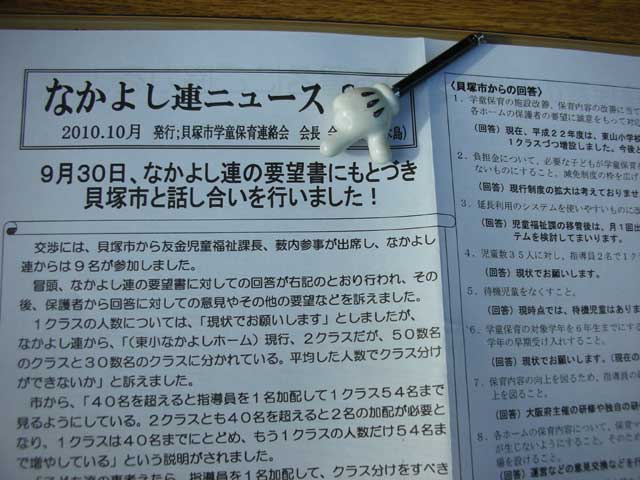 なかよし連ニュース
2010.10月 発行;貝塚市学童保育連絡会 会長
島)
9月30日、なかよし連の要望書にもとづき
貝塚市と話し合いを行いました！
交渉には、貝塚市から友金児童福祉課長、藪内参事が出席し、なかよし
連からは９名が参加しました。
冒頭、なかよし連の要望書に対しての回答が右記のとおり行われ、その
後、保護者から回答に対しての意見やその他の要望などを訴えました。
１クラスの人数については、「現状でお願いします」としましたが、
なかよし連から、「（東小なかよしホーム）現行、２クラスだが、５０数名
のクラスと３０数名のクラスに分かれている。平均した人数でクラス分け
ができないか」と訴えました。
市から、「４０名を超えると指導員を１名加配して１クラス５４名まで
見るようにしている。２クラスとも４０名を超えると２名の加配が必要と
なり、１クラスは４０名までにとどめ、もう１クラスの人数だけ５４名ま
で増やしている」という説明がされました。
えたら、指導員を１名加配して、クラス分けをすべき
〈貝塚市からの回答〉
１．学童保育の施設改善、保育内容の改善に当
各ホームの保護者の要望に誠意をもって対応
（回答）現在、平成２２年度は、東山小学校
１クラスづつ増設しました。今後と
２．負担金について、必要な子どもが学童保育
ないものにすること。減免制度の枠を広げ
（回答）現行制度の拡大は考えておりませ
３．延長利用のシステムを使いやすいものに改
（回答）児童福祉課の移管後は、月１回
テムを検討してまいります。
４．児童数３５人に対し、指導員２名で１ク
（回答）現状でお願いします。
５．待機児童をなくすこと。
（回答）現時点では、待機児童はありま
６．学童保育の対象学年を６年生までにする
学年の早期受け入れすること。
（回答）現状でお願いします。（現在の
７．保育内容の向上を図るため、指導員の
上を図ること。
（回答）大阪府主催の研修や独自の研
８．各ホームの保育内容について、
が生じないようにすること。そのため
場を設けること。
（回答）運営などの意見交換などを行